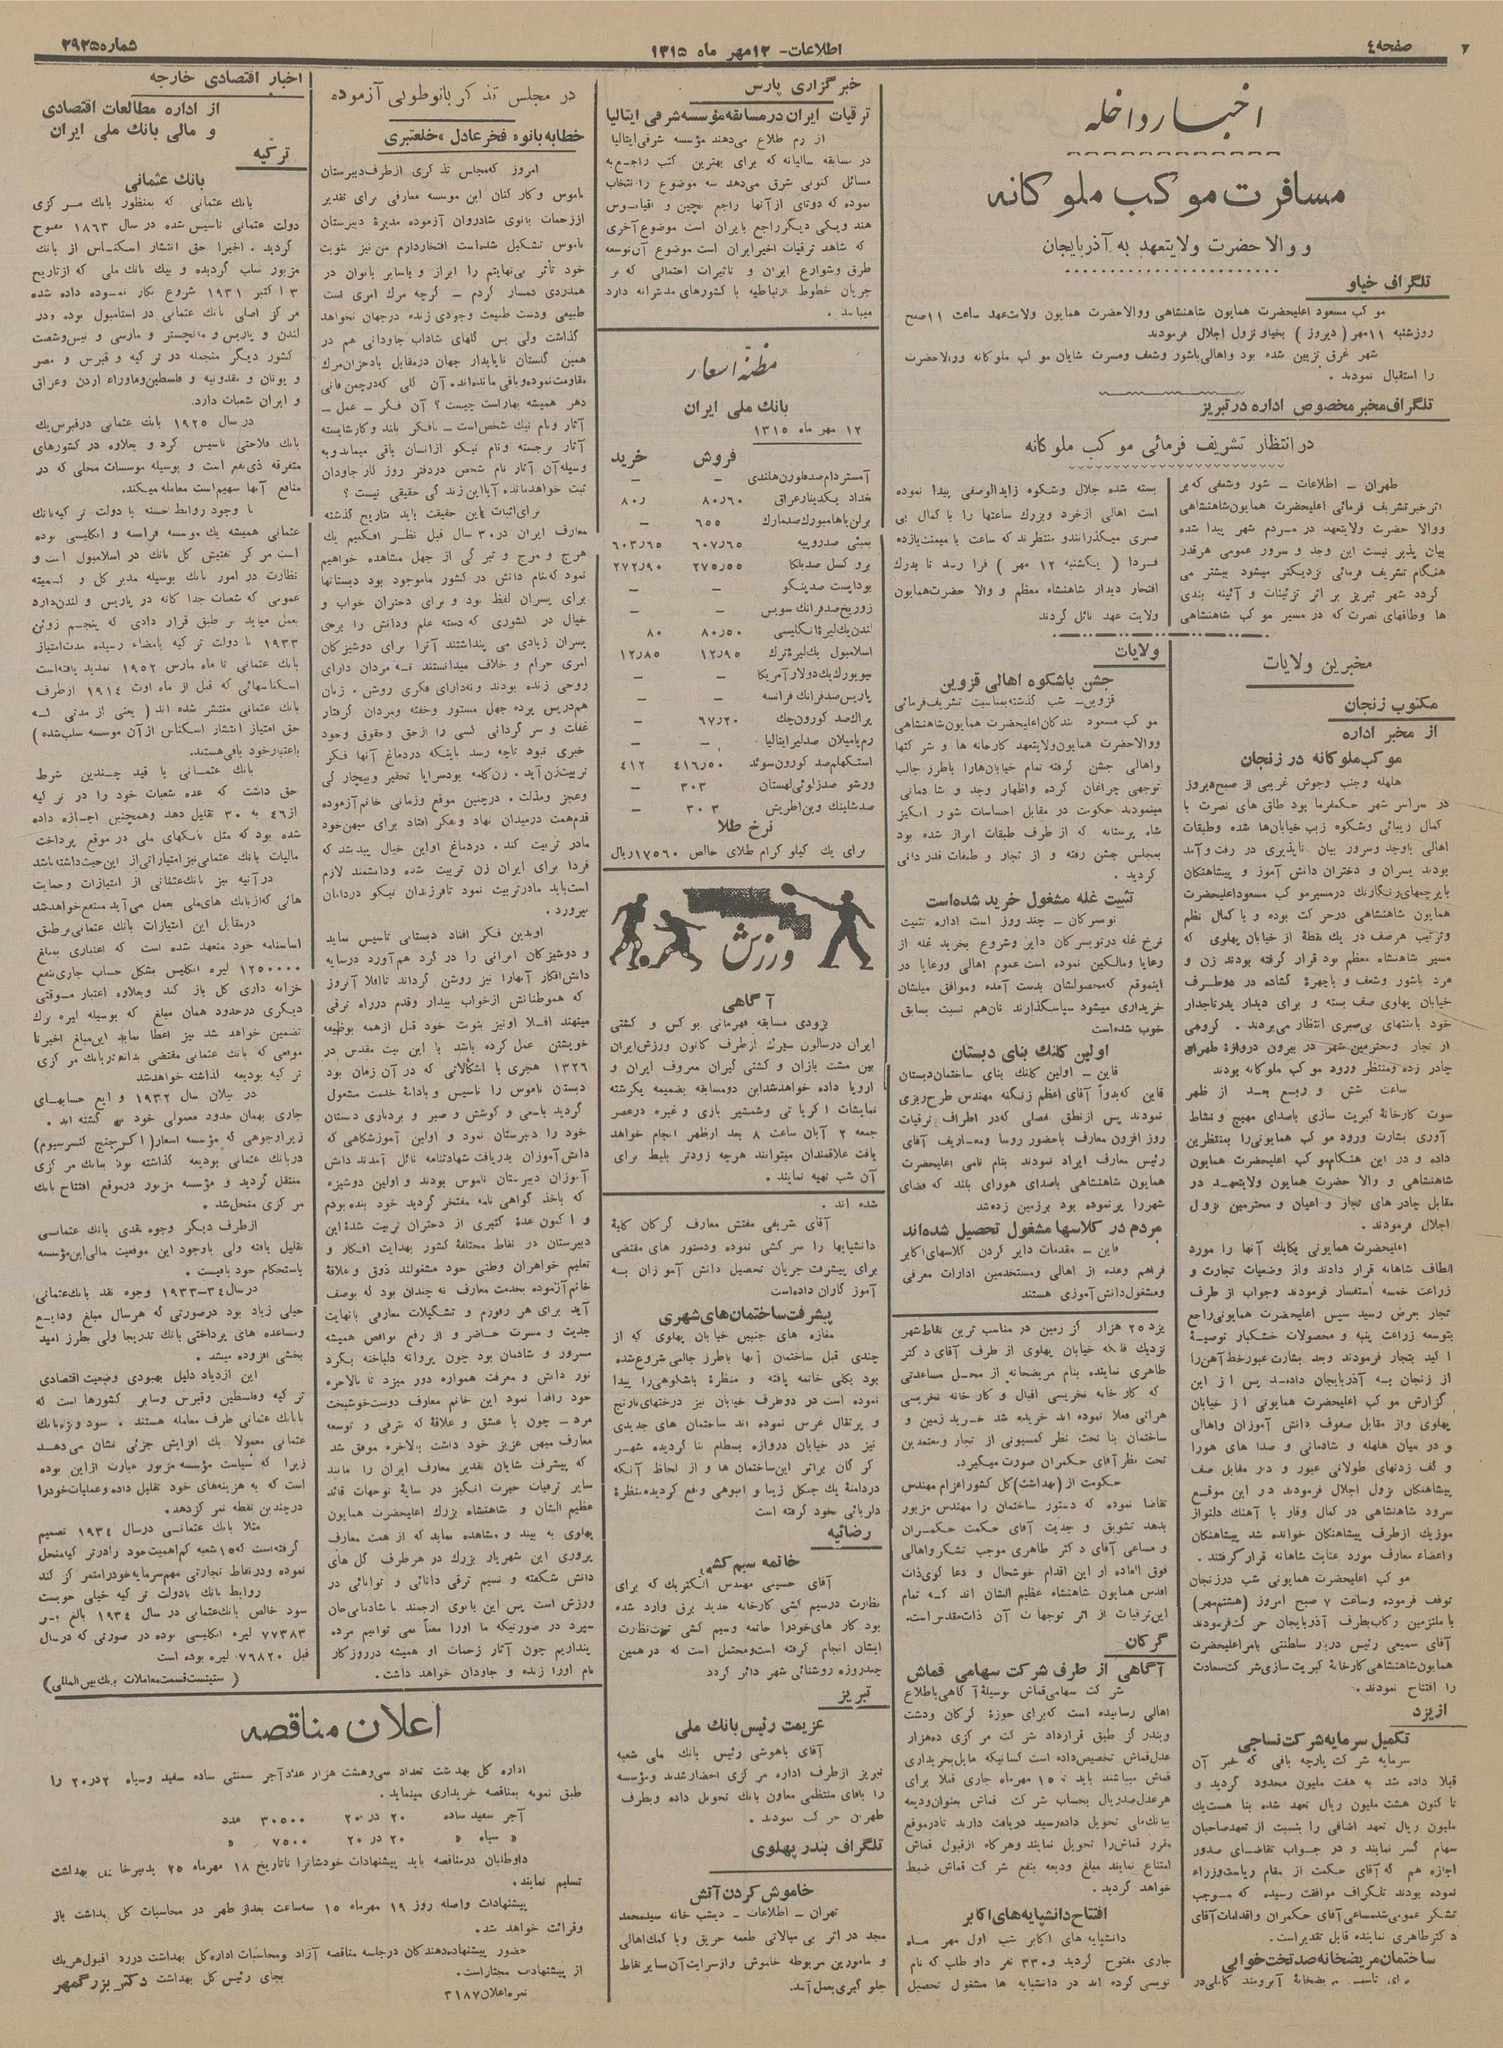 صفحه٤
اطلاعات- ١٢مهر ماه ١٣١٥
شماره٢٩٢٥
اخبار داخله
مسافرت موکب ملوکانه
و والا حضرت ولایتعهد به آذربایجان
تلگراف خیاو
موکب مسعود اعلیحضرت همایون شاهنشاهی ووالاحضرت همایون ولایتعهد ساعت ١١صبح
روزشنبه ١١مهر ( دیروز ) بخیاو نزول اجلال فرمودند
شهر غرق تزیین شده بود واهالی باشور وشعف ومسرت شایان موکب ملوکانه ووالاحضرت
را استقبال نمودند .
تلگراف مخبر مخصوص اداره در تبریز
در انتظار تشریف فرمائی موکب ملوکانه
طهران – اطلاعات – شور وشعفی که بر
اثر خبر تشریف فرمائی اعلیحضرت همایون شاهنشاهی
ووالا حضرت ولایتعهد در مردم شهر پیدا شده
بیان پذیر نیست این وجد و سرور عمومی هرقدر
هنگام تشریف فرمائی نزدیکتر میشود بیشتر می
گردد شهر تبریز بر اثر تزئینات و آئینه بندی
ها وطاقهای نصرت که در مسیر موکب شاهنشاهی
بسته شده جلال وشکوه زایدالوصفی پیدا نموده
است اهالی ازخرد وبزرک ساعتها را با کمال بی
صبری میگذرانندو منتظرند که ساعت با میمنت یازده
فردا ( یکشنبه ١٢ مهر ) فرا رسد تا بدرک
افتخار دیدار شاهنشاه معظم و والا حضرت همایون
ولایت عهد نائل گردند
مخبرین ولایات
مکتوب زنجان
از مخبر اداره
موکب ملوکانه در زنجان
هلهله وجنب وجوش غریبی از صبح دیروز
در سراسر شهر حکمفرما بود طاق های نصرت با
کمال زیبائی وشکوه زیب خیابان‌ها شده وطبقات
اهالی باوجد وسرور بیان ناپذیری در رفت وآمد
بودند پسران و دختران دانش آموز و پیشاهنکان
با پرچمهای رنگارنک درمسیر موکب مسعود اعلیحضرت
همایون شاهنشاهی درحرکت بوده و با کمال نظم
وترتیب هرصف در یك نقطۀ از خیابان پهلوی که
مسیر شاهنشاه معظم بود قرار گرفته بودند زن و
مرد باشور وشعف و باچهرۀ گشاده در دوطرف
خیابان پهلوی صف بسته و برای دیدار پدر تاجدار
خود بامنتهای بی‌صبری انتظار می‌بردند . گروهی
از تجار ومحترمین شهر در بیرون دروازۀ طهران
چادر زده ومنتظر ورود موکب ملوکانه بودند
ساعت شش و ربع بعد از ظهر
سوت کارخانۀ کبریت سازی باصدای مهیج و نشاط
آوری بشارت ورود موکب همایونی را بمنتظرین
داده و در این هنگام موکب اعلیحضرت همایون
شاهنشاهی و والا حضرت همایون ولایتعهد در
مقابل چادر های تجار و اعیان و محترمین نزول
اجلال فرمودند .
اعلیحضرت همایونی یکایک آنها را مورد
الطاف شاهانه قرار دادند واز وضعیات تجارت و
زراعت خمسه استفسار فرمودند وجواب از طرف
تجار بعرض رسید سپس اعلیحضرت همایونی راجع
بتوسعه زراعت پنبه و محصولات خشکبار توصیۀ
اکید بتجار فرمودند وبعد بشارت عبور خط آهن را
از زنجان به آذربایجان دادند پس از این
گزارش موکب اعلیحضرت همایونی از خیابان
پهلوی واز مقابل صفوف دانش آموزان واهالی
و در میان هلهله و شادمانی و صدا های هورا
و کف زدنهای طولانی عبور و در مقابل صف
پیشاهنکان نزول اجلال فرمودند در این موقع
سرود شاهنشاهی در کمال وقار با آهنك دلنواز
موزیک ازطرف پیشاهنکان خوانده شد پیشاهنکان
واعضاء معارف مورد عنایت شاهانه قرار گرفتند .
موکب اعلیحضرت همایونی شب درزنجان
توقف فرموده وساعت ٧ صبح امروز (هشتم مهر)
با ملتزمین رکاب بطرف آذربایجان حرکت فرمودند
آقای سمیعی رئیس دربار سلطنتی بامر اعلیحضرت
همایون شاهنشاهی کارخانۀ کبریت سازی شرکت سعادت
را افتتاح نمودند .
از یزد
تکمیل سرمایه شرکت نساجی
سرمایه شرکت پارچه بافی که خبر آن
قبلا داده شد به هفت ملیون محدود گردید و
تا کنون هشت ملیون ریال تعهد شده بنا هست یك
ملیون ریال تعهد اضافی را بنسبت از تعهد صاحبان
سهام کسر نمایند و در جواب تقاضای صدور
اجازه هم که آقای حکمت از مقام ریاست وزراء
نموده بودند تلگراف موافقت رسیده که موجب
تشکر عمومی شد مساعی آقای حکمران واقدامات آقای
دکتر طاهری نماینده قابل تقدیر است .
ساختمان مریضخانه صد تخت خوابی
برای تاسیس مریضخانۀ آبرومند کاملی در
ولایات
جشن باشکوه اهالی قزوین
قزوین– شب گذشته بمناسبت تشریف فرمائی
موکب مسعود بندکان اعلیحضرت همایون شاهنشاهی
ووالاحضرت همایون ولایتعهد کارخانه ها و شرکتها
واهالی جشن گرفته تمام خیابان هارا باطرز جالب
توجهی چراغان کرده واظهار وجد و شادمانی
مینمودند حکومت در مقابل احساسات شور انگیز
شاه پرستانه که از طرف طبقات ابراز شده بود
بمجلس جشن رفته و از تجار و طبقات قدردانی
گردید .
تثبیت غله مشغول خرید شده‌است
تویسرکان – چند روز است اداره تثبیت
نرخ غله درتویسرکان دایر وشروع بخرید غله از
رعایا ومالکین نموده است عموم اهالی ورعایا در
اینموقع که محصولشان بدست آمده وموافق میلشان
خریداری میشود سپاسگذارند نان هم نسبت بسابق
خوب شده است
اولین کلنك بنای دبستان
قاین – اولین کلنك بنای ساختمان دبستان
قاین که بدواً آقای اعظم زنگنه مهندس طرح ریزی
نمودند پس ازنطق فصلی که در اطراف ترقیات
روز افزون معارف باحضور روسا ومعاریف آقای
رئیس معارف ایراد نمودند بنام نامی اعلیحضرت
همایون شاهنشاهی باصدای هورای بلند که فضای
شهررا پر نموده بود برزمین زده شد
مردم در کلاسها مشغول تحصیل شده‌اند
قاین – مقدمات دایر کردن کلاسهای اکابر
فراهم وعده از اهالی ومستخدمین ادارات معرفی
ومشغول دانش آموزی هستند
یزد ٢٥ هزار گز زمین در مناسب ترین نقاط شهر
نزدیك فلکه خیابان پهلوی از طرف آقای دکتر
طاهری نماینده بنام مریضخانه از محل مساعدتی
که کارخانه نخریسی اقبال و کارخانه نخریسی
هراتی فعلا نموده اند خریده شد خرید زمین و
ساختمان بنا تحت نظر کمسیونی از تجار ومعتمدین
تحت نظر آقای حکمران صورت میگیرد .
حکومت از (بهداشت)کل کشور اعزام مهندس
تقاضا نموده که دستور ساختمان را مهندس مزبور
بدهد تشویق و جدیت آقای حکمت حکمران
و مساعی آقای دکتر طاهری موجب تشکر واهالی
فوق العاده از این اقدام خوشحال و دعا گوی ذات
اقدس همیون شاهنشاه عظیم الشان اند که تمام
این ترقیات از اثر توجهات آن ذات مقدس است .
گرگان
آگاهی از طرف شرکت سهامی قماش
شرکت سهامی قماش بوسیلۀ آگاهی باطلاع
اهالی رسانیده است که برای حوزۀ گرگان ودشت
وبندر گز طبق قرارداد شرکت مرکزی ده هزار
عدل قماش تخصیص داده است کسانیکه مایل بخریداری
قماش میباشند باید تا ١٥ مهرماه جاری قبلا برای
هرعدل صدریال بحساب شرکت قماش بعنوان ودیعه
ببانك ملی تحویل داده رسید دریافت دارند تا درموقع
مقرر قماش را تحویل نمایند وهرکاه ازقبول قماش
امتناع نمایند مبلغ ودیعه بنفع شرکت قماش ضبط
خواهد گردید .
افتتاح دانشپایه های اکابر
دانشپایه های اکابر شب اول مهر ماه
جاری مفتوح گردید و ٣٣٠ نفر داو طلب که نام
نویسی کرده اند در دانشپایه ها مشغول تحصیل
خبر گزاری پارس
ترقیات ایران در مسابقه مؤسسه شرقی ایتالیا
از رم طلاع می‌دهند مؤسسه شرقی ایتالیا
در مسابقه سالیانه که برای بهترین کتب راجع به
مسائل کنونی شرق می‌دهد سه موضوع را انتخاب
نموده که دوتای از آنها راجع بچین و اقیانوس
هند ویکی دیگر راجع بایران است موضوع آخری
که شاهد ترقیات اخیر ایران است موضوع آن توسعه
طرق وشوارع ایران و تاثیرات احتمالی که بر
جریان خطوط ارتباطیه با کشورهای مدیترانه دارد
میباشد .
مظنه اسعار
بانك ملی ایران
١٢ مهر ماه ١٣١٥
فروش خرید
آمستردام صد فلورن هلندی – –
بغداد یکدینار عراق ٨٠٫٦٠ ٨٠٫
برلن یاهامبورك صدمارك ٦٥٥ –
بمبئی صدروپیه ٦٠٧٫٦٥ ٦٠٣٫٦٥
بروکسل صدبلکا ٢٧٥٫٥٥ ٢٧٢٫٩٠
بوداپست صدپنکو – –
زوریخ صدفرانك سویس – –
لندن یك لیرۀ انگلیسی ٨٠٫٥٠ ٨٠
اسلامبول یك لیرۀ ترك ١٢٫٩٥ ١٢٫٨٥
نیویورك یك دولار آمریکا – –
پاریس صدفرانك فرانسه – –
پراك صدکورون چك ٦٧٫٢٠ –
رم یا میلان صدلیر ایتالیا – –
استکهلم صدکورون سوئد ٤١٦٫٥٠ ٤١٢
ورشو صدزلوئی لهستان ٣٠٣ –
صدشلینك وین اطریش ٣٠٣ –
نرخ طلا
برای یك کیلو گرام طلای خالص ١٧٥٦٠ریال
ورزش
آگاهی
بزودی مسابقه قهرمانی بوکس و کشتی
ایران درسالون سیرك از طرف کانون ورزش ایران
بین مشت بازان و کشتی گیران معروف ایران و
اروپا داده خواهد شد این دومسابقه بضمیمه یکرشته
نمایشات اکرباتی وشمشیر بازی و غیره درعصر
جمعه ٢ آبان ساعت ٨ بعد ازظهر انجام خواهد
یافت علاقمندان میتوانند هرچه زودتر بلیط برای
آن شب تهیه نمایند .
شده اند .
آقای شریفی مفتش معارف گرگان کلیۀ
دانشپایها را سرکشی نموده ودستور های مقتضی
برای پیشرفت جریان تحصیل دانش آموزان به
آموزگاران داده است
پیشرفت ساختمان های شهری
مغازه های جنبین خیابان پهلوی که از
چندی قبل ساختمان آنها باطرز جالبی شروع شده
بود بکلی خاتمه یافته و منظرۀ باشکوهی را پیدا
نموده است در دوطرف خیابان نیز درختهای نارنج
و پرتقال غرس نموده اند ساختمان های جدیدی
نیز در خیابان دروازه بسطام بنا گردیده شهر
گرگان براثر این ساختمان ها و از لحاظ آنکه
دردامنۀ یك جنگل زیبا و انبوهی واقع گردیده منظرۀ
دلربائی بخود گرفته است
رضائیه
خاتمه سیم کشی
آقای حسینی مهندس الکتریك که برای
نظارت درسیم کشی کارخانه جدید برق وارد شده
بود کار های خودرا خاتمه وسیم کشی تحت نظارت
ایشان انجام گرفته است ومحتمل است که در همین
چندروزه روشنائی شهر دائر گردد
تبریز
عزیمت رئیس بانك ملی
آقای باهوشی رئیس بانك ملی شعبه
تبریز ازطرف اداره مرکزی احضار شدند ومؤسسه
را باقای منتظمی معاون بانك تحویل داده وبطرف
طهران حرکت نمودند .
تلگراف بندر پهلوی
خاموش کردن آتش
تهران – اطلاعات – دیشب خانه سیدمحمد
مجد در اثر بی مبالاتی طعمه حریق وبا کمك اهالی
و مامورین مربوطه خاموش وازسرایت آن سایر نقاط
جلوگیری بعمل آمد .
در مجلس تذکر بانو طوبی آزموده
خطابه بانو « فخر عادل » خلعتبری
امروز که مجلس تذکری ازطرف دبیرستان
ناموس وکارکنان این موسسه معارفی برای تقدیر
اززحمات بانوی شادروان آزموده مدیرۀ دبیرستان
ناموس تشکیل شده است افتخاردارم من نیز بنوبت
خود تأثر بی‌نهایتم را ابراز و باسایر بانوان در
همدردی دمساز گردم – گرچه مرك امری است
طبیعی ودست طبیعت وجودی زنده درجهان نخواهد
گذاشت ولی بس گلهای شاداب جاودانی هم در
همین گلستان ناپایدار جهان درمقابل بادخزان مرك
مقاومت نموده وباقی مانده‌اند . آن گلی که درچمن فانی
دهر همیشه بهار است چیست ؟ آن فکر – عمل –
آثار ونام نیك شخص است – بافکر بلند وکار شایسته
آثار برجسته ونام نیکو ازانسان باقی میماند وبه
وسیله آن آثار نام شخص دردفتر روزگار جاودان
ثبت خواهد ماند . آیا این زندگی حقیقی نیست ؟
برای اثبات باین حقیقت باید بتاریخ گذشته
معارف ایران در ٣٠ سال قبل نظر افکنیم یك
هرج و مرج و تیرگی از جهل مشاهده خواهیم
نمود که بنام دانش در کشور ما موجود بود دبستانها
برای پسران لفظ بود و برای دختران خواب و
خیال در کشوری که دسته علم ودانش را برخی
پسران زیادی می پنداشتند آنرا برای دوشیزکان
امری حرام و خلاف میدانستند نه مردان دارای
روحی زنده بودند ونه دارای فکری روشن . زنان
هم درپس پرده جهل مستور وخفته ومردان گرفتار
غفلت و سرگردانی کسی را ازحق و حقوق وجود
خبری نبود تاچه رسد باینکه دردماغ آنها فکر
تربیت زن آید . زن کلمه بود سراپا تحقیر وبیچارگی
وعجز ومذلت . درچنین موقع وزمانی خانم آزموده
قدم همت درمیدان نهاد وبفکر افتاد برای میهن خود
مادر تربیت کند . دردماغ اواین خیال پیدشد که
فردا برای ایران زن تربیت شده ودانشمند لازم
است باید مادر تربیت نمود تافرزندان نیکو دردامان
بپرورد .
اوبدین فکر افتاد دبستانی تاسیس نماید
و دوشیزکان ایرانی را در گرد هم آورد درسایه
دانش افکار آنهارا نیز روشن گرداند تااقلا آنروز
که هموطنانش ازخواب بیدار وقدم درراه ترقی
مینهند اقلا اونیز بنوبت خود قبل ازهمه بوظیفه
خویشتن عمل کرده باشد با این نیت مقدس در
١٣٢٦ هجری با اشکالاتی که در آن زمان بود
دبستان ناموس را تاسیس و بادامۀ خدمت مشغول
گردید باسعی و کوشش و صبر و بردباری دبستان
خود را دبیرستان نمود و اولین آموزشگاهی که
دانش آموزان بدریافت شهادتنامه نائل آمدند دانش
آموزان دبیرستان ناموس بودند و اولین دوشیزه
که باخذ گواهی نامه مفتخر گردید خود بنده بودم
و اکنون عدۀ کثیری از دختران تربیت شدۀ این
دبیرستان در نقاط مختلفۀ کشور بهدایت افکار و
تعلیم خواهران وطنی خود مشغولند ذوق و علاقۀ
خانم آزموده بخدمت معارف نه چندان بود که بوصف
آید برای هر رفورم و تشکیلات معارفی بانهایت
جدیت و مسرت حاضر و از رفع نواقص همیشه
مسرور و شادمان بود چون پروانه دلباخته بگرد
نور دانش و معرفت همواره دور میزد تا بالاخره
خود رافدا نمود این خانم معارف دوست خوشبخت
مرد – چون با عشق و علاقۀ که بترقی و توسعه
معارف میهن عزیز خود داشت بالاخره موفق شد
که پیشرفت شایان تقدیر معارف ایران را مانند
سایر ترقیات حیرت انگیز در سایۀ توجهات قائد
عظیم الشان و شاهنشاه بزرك اعلیحضرت همایون
پهلوی به بیند و مشاهده نماید که از همت معارف
پروری این شهریار بزرك در هرطرف گل های
دانش شکفته و نسیم ترقی دانائی و توانائی در
ورزش است پس این بانوی ارجمند با شادمانی جان
سپرد در صورتیکه ما اورا معناً نمی توانیم مرده
پنداریم چون آثار زحمات او همیشه درروزگار
نام اورا زنده و جاودان خواهد داشت .
اخبار اقتصادی خارجه
از اداره مطالعات اقتصادی
و مالی بانك ملی ایران
ترکیه
بانك عثمانی
بانك عثمانی که بمنظور بانك مرکزی
دولت عثمانی تاسیس شده در سال ١٨٦٣ مفتوح
گردید . اخیرا حق انتشار اسکناس از بانك
مزبور سلب گردیده و بیك بانك ملی که ازتاریخ
٣ اکتبر ١٩٣١ شروع بکار نموده داده شده
مرکز اصلی بانك عثمانی در استامبول بوده ودر
لندن و پاریس و مانچستر و مارسی و نیس وشصت
کشور دیگر منجمله در ترکیه و قبرس و مصر
و یونان و مقدونیه و فلسطین وماوراء اردن وعراق
و ایران شعبات دارد.
در سال ١٩٢٥ بانك عثمانی درقبرس یك
بانك فلاحتی تاسیس کرد و بعلاوه در کشورهای
متفرقه ذی‌نفع است و بوسیله موسسات محلی که در
منافع آنها سهیم است معامله میکند .
با وجود روابط حسنه با دولت ترکیه بانك
عثمانی همیشه یك موسسه فرانسه و انکلیسی بوده
است مرکز تفتیش کل بانك در اسلامبول است و
نظارت در امور بانك بوسیله مدیر کل و کمیته
عمومی که شعبات جدا گانه در پاریس و لندن دارد
بعمل میاید بر طبق قرار دادی که پنجم ژوئن
١٩٣٣ با دولت ترکیه بامضاء رسیده مدت امتیاز
بانك عثمانی تا ماه مارس ١٩٥٢ تمدید یافته است
اسکناسهائی که قبل از ماه اوت ١٩١٤ ازطرف
بانك عثمانی منتشر شده اند ( یعنی از مدتی که
حق امتیاز انتشار اسکناس از آن موسسه سلب شده)
باعتبار خود باقی هستند.
بانك عثمانی با قید چندین شرط
حق داشت که عده شعبات خود را در ترکیه
از ٤٦ به ٣٠ تقلیل دهد وهمچنین اجازه داده
شده بود که مثل بانکهای ملی در موقع پرداخت
مالیات بانك عثمانی نیز امتیازاتی از این حیث داشته باشد
در آتیه نیز بانك عثمانی از امتیازات وحمایت
هائی که ازبانك های ملی بعمل می آید منتفع خواهد شد
درمقابل این امتیازات بانك عثمانی بر طبق
اساسنامه خود متعهد شده است که اعتباری بمبلغ
١٢٥٠٠٠٠ لیره انکلیس بشکل حساب جاری بنفع
خزانه داری کل باز کند وبعلاوه اعتبار موقتی
دیگری درحدود همان مبلغ که بوسیله لیره ترك
تضمین خواهد شد نیز اعطا نماید این مبلغ اخیر تا
موقعی که بانك عثمانی مقتضی بداند در بانك مرکزی
ترکیه بودیعه گذاشته خواهد شد
در بیلان سال ١٩٣٢ و دایع حسابهای
جاری بهمان حدود معمولی خود برگشته اند .
زیرا وجوهی که مؤسسه اسعار( اکسچنج کنسرسیوم)
دربانك عثمانی بودیعه گذاشته بود ببانك مرکزی
منتقل گردید و مؤسسه مزبور درموقع افتتاح بانك
مرکزی منحل شد .
ازطرف دیگر وجوه نقدی بانك عثمانی
تقلیل یافته ولی باوجود این موقعیت مالی این مؤسسه
باستحکام خود باقیست .
درسال ٣٤–١٩٣٣ وجوه نقد بانك عثمانی
خیلی زیاد بود درصورتی که هرسال مبلغ ودایع
ومساعده های پرداختی بانك تدریجا ولی بطرز امید
بخشی افزوده میشد .
این ازدیاد دلیل بهبودی وضعیت اقتصادی
ترکیه وفلسطین وقبرس وسایر کشورها است که
بابانك عثمانی طرف معامله هستند . سود ویژه بانك
عثمانی معمولا یك افزایش جزئی نشان می‌دهد
زیرا که سیاست مؤسسه مزبور عبارت ازاین بوده
است که به هزینه‌های خود تقلیل داده وعملیات خودرا
درچندین نقطه تمر کزدهد.
مثلا بانك عثمانی درسال ١٩٣٤ تصمیم
گرفته است که ١٥ شعبه کم اهمیت خود رادرترکیا منحل
نموده ودرنقاط تجارتی مهم سرمایه خودرامتمرکز کند
روابط بانك بادولت ترکیه خیلی خوبست
سود خالص بانك عثمانی در سال ١٩٣٤ بالغ بر
٧٧٣٨٣ لیره انکلیسی بوده در صورتی که درسال
قبل ٧٦٨٢٠ لیره بوده است
اعلان مناقصه
اداره کل بهداشت تعداد سی‌وهشت هزار عدد آجر سمنتی ساده سفید وسیاه ٢٠در٢٠ را
طبق نمونه بمناقصه خریداری مینماید .
آجر سفید ساده ٢٠ در ٢٠ ٣٠٥٠٠ عدد
« سیاه « ٢٠ در ٢٠ ٧٥٠٠ «
داوطلبان درمناقصه باید پیشنهادات خودشانرا تاتاریخ ١٨ مهرماه ٢٥ بدبیرخانه بهداشت
تسلیم نمایند .
پیشنهادات واصله روز ١٩ مهرماه ١٥ سه‌ساعت بعداز ظهر در محاسبات کل بهداشت باز
وقرائت خواهد شد .
حضور پیشنهاددهندکان درجلسه مناقصه آزاد ومحاسبات اداره کل بهداشت دررد اقبول هریك
از پیشنهادات مختار است .
بجای رئیس کل بهداشت دکتر بزرگمهر
نمره‌اعلان ٣١٨٧